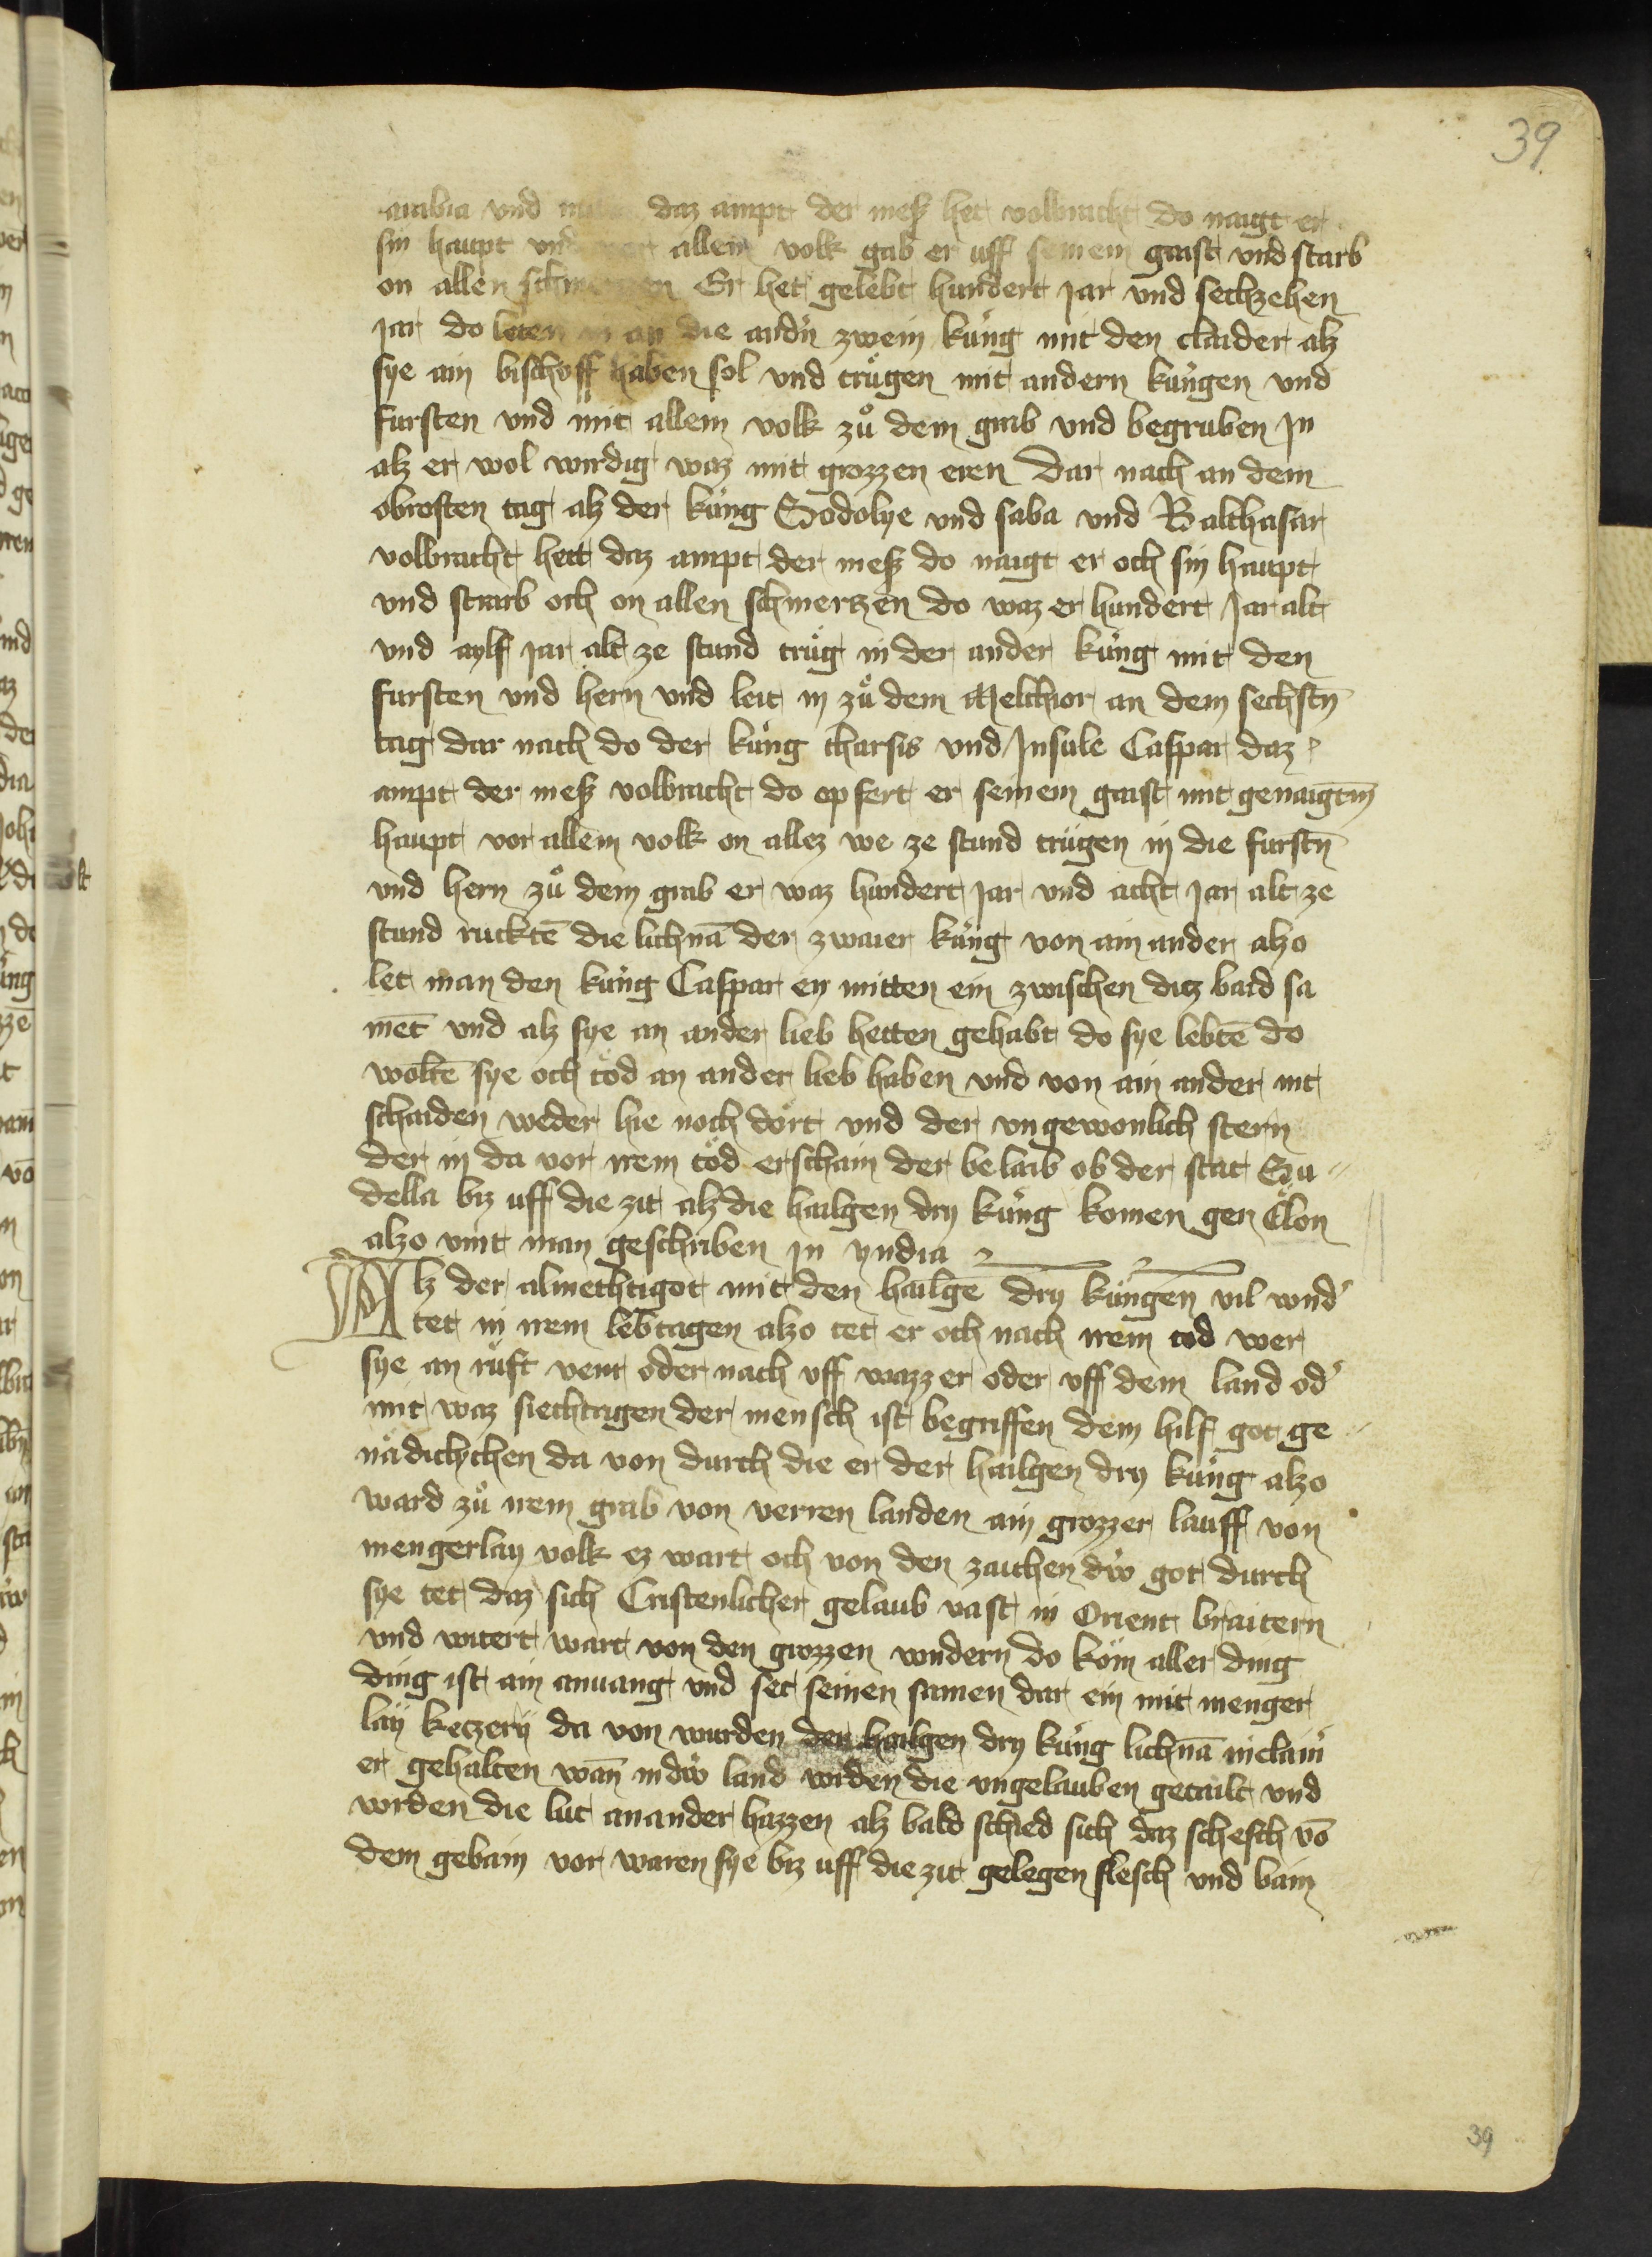 39
arabia vnd daz ampt der mesz het volbracht do naigt er
sin haupt vnd allem volk gab er uff seinem gaist vnd starb
on allen Er het gelebt hundert jar vnd sechzehen
jar do leten die andn̄ zwein kúng mit den claider alz
sye ain bischoff haben sol vnd trůgen mit andern kúngen vnd
fursten vnd mit allem volk zů dem grab vnd begruben In
alz er wol wirdig waz mit grozzen eren Dar nach an dem
obrosten tag alz der kúng Godolye vnd saba vnd Balthasar
volbracht hett daz ampt der mesz do naigt er och sin haupt
vnd starb och on allen schmertzen do waz er hundert Jar alt
vnd aylf jar alt ze stund trůg in der ander kúng mit den
fursten vnd hern vnd leit in zů dem Melchior an dem sechstn̄
tag dar nach do der kúng tharsis vnd Insule Caspar daz
ampt der mesz volbracht do opfert er seinem gaist mit genaigtm̄
haupt vor allem volk on allez we ze stund trůgen in die furstn̄
vnd hern zů dem grab er waz hundert jar vnd acht jar alt ze
stund ruktē die lichnā der zwaier kúng von ain ander alzo
let man den kúng Caspar en mitten ein zwischen ditz baid sa
met vnd alz sye an ander lieb hetten gehabt do sye lebtē do
woltē sye och töd an ander lieb haben vnd von ain ander nit
schaiden weder hie noch dört vnd der vngewonlich stern
der in da vor irem töd erschain der belaib ob der stat Su
della biz uff die zit alz die hailgen dry kúng komen gen Cölon
alzo vint man geschriben in yndia
Alz der almechtigot mit den hailgē dry kúngen vil wnd'
tet in irem lebtagen alzo tet er och nach irem tod wer
sye an růft verr oder nach vff wazzer oder vff dem land od'
mit waz siechtagen der mensch ist begriffen dem hilf got ge
nädichychen da von durch die er der hailgen dry kúng alzo
ward zů irem grab von verren landen ain grozzer lauff von
mengerlay volk ez wart och von den zaichen dẃ got durch
sye tet daz sich Cristenlicher gelaub vast in Orient braitern
vnd witert wart von den grozzen wndern do köm aller ding
ding ist ain anuang vnd set seinen samen dar ein mit menger
lay ketzery da von wurden der hailgen dry kúng lichnā in clain'
er gehalten wan̄ in dẃ land wrden die vngelauben getailt vnd
wrden die lut anander hazzen alz bald schied sich daz schesch vō
dem gebain vor waren sye biz uff die zit gelegen flesch vnd bain
39